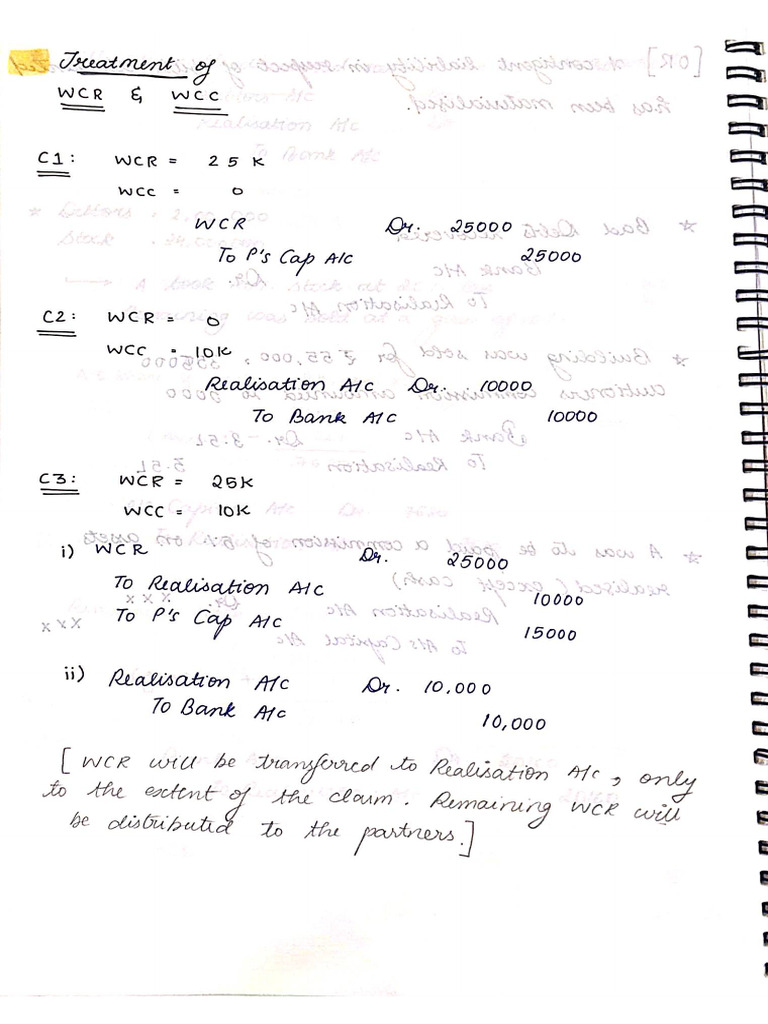 Treatment of
WCR & WCC
C1: WCR = 25K
WCC = 0
WCR Dr. 25000
To P's Cap A/c 25000
C2: WCR = 0
WCC = 10K
Realisation A/c Dr. 10000
To Bank A/c 10000
C3: WCR = 25K
WCC = 10K
i) WCR Dr. 25000
To Realisation A/c 10000
x x x
x x x To P's Cap A/c 15000
ii) Realisation A/c Dr. 10,000
To Bank A/c 10,000
[WCR will be transferred to Realisation A/c, only
to the extent of the claim. Remaining WCR will
be distributed to the partners.]